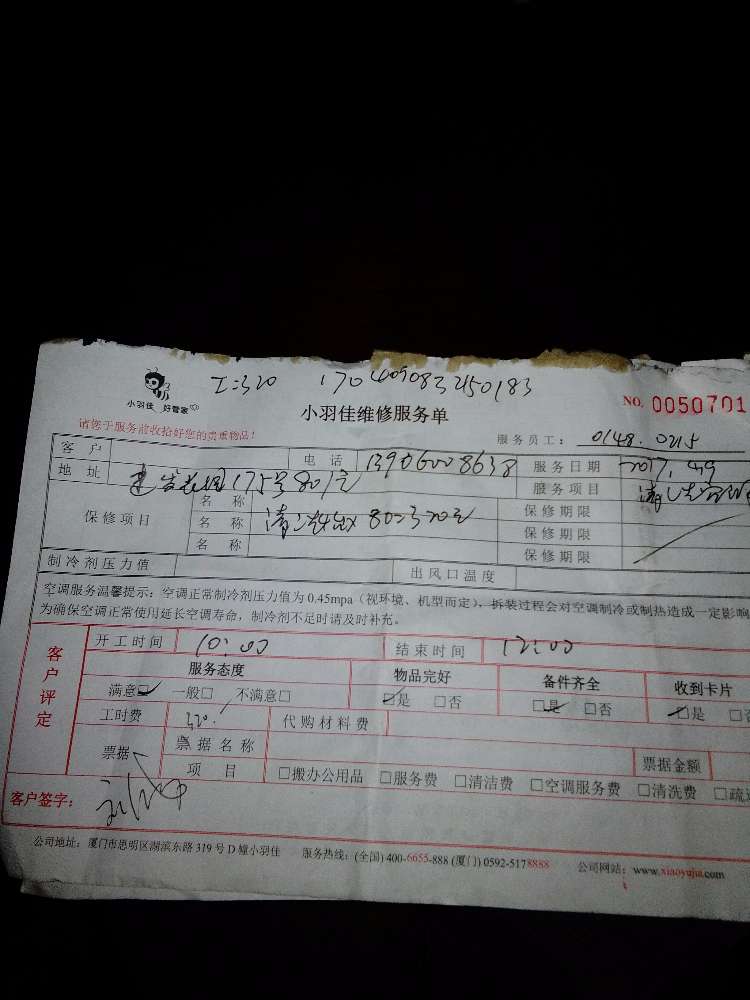 工:320 1704090832150183
小羽佳 好管家
小羽佳维修服务单
NO. 0050701
请您于服务前收拾好您的贵重物品!
服务员工: 0148.0215
客户 电话 13906008638 服务日期 2017.4.9
地址 建发花园175号801室 服务项目
保修项目 名称 保修期限
名称 保修期限
名称 保修期限
制冷剂压力值 出风口温度
空调服务温馨提示:空调正常制冷剂压力值为0.45mpa(视环境、机型而定),拆装过程会对空调制冷或制热造成一定影响
为确保空调正常使用延长空调寿命,制冷剂不足时请及时补充。
客户评定
开工时间 10:00 结束时间 12:00
服务态度 物品完好 备件齐全 收到卡片
满意□ 一般□ 不满意□ □是 □否 □是 □否 □是
工时费 320. 代购材料费
票据 票据名称 票据金额
项目 □搬办公用品 □服务费 □清洁费 □空调服务费 □清洗费 □疏
客户签字:
公司地址:厦门市思明区湖滨东路319号D幢小羽佳 服务热线:(全国)400-6655-888 (厦门)0592-5178888 公司网站:www.xiaoyujia.com